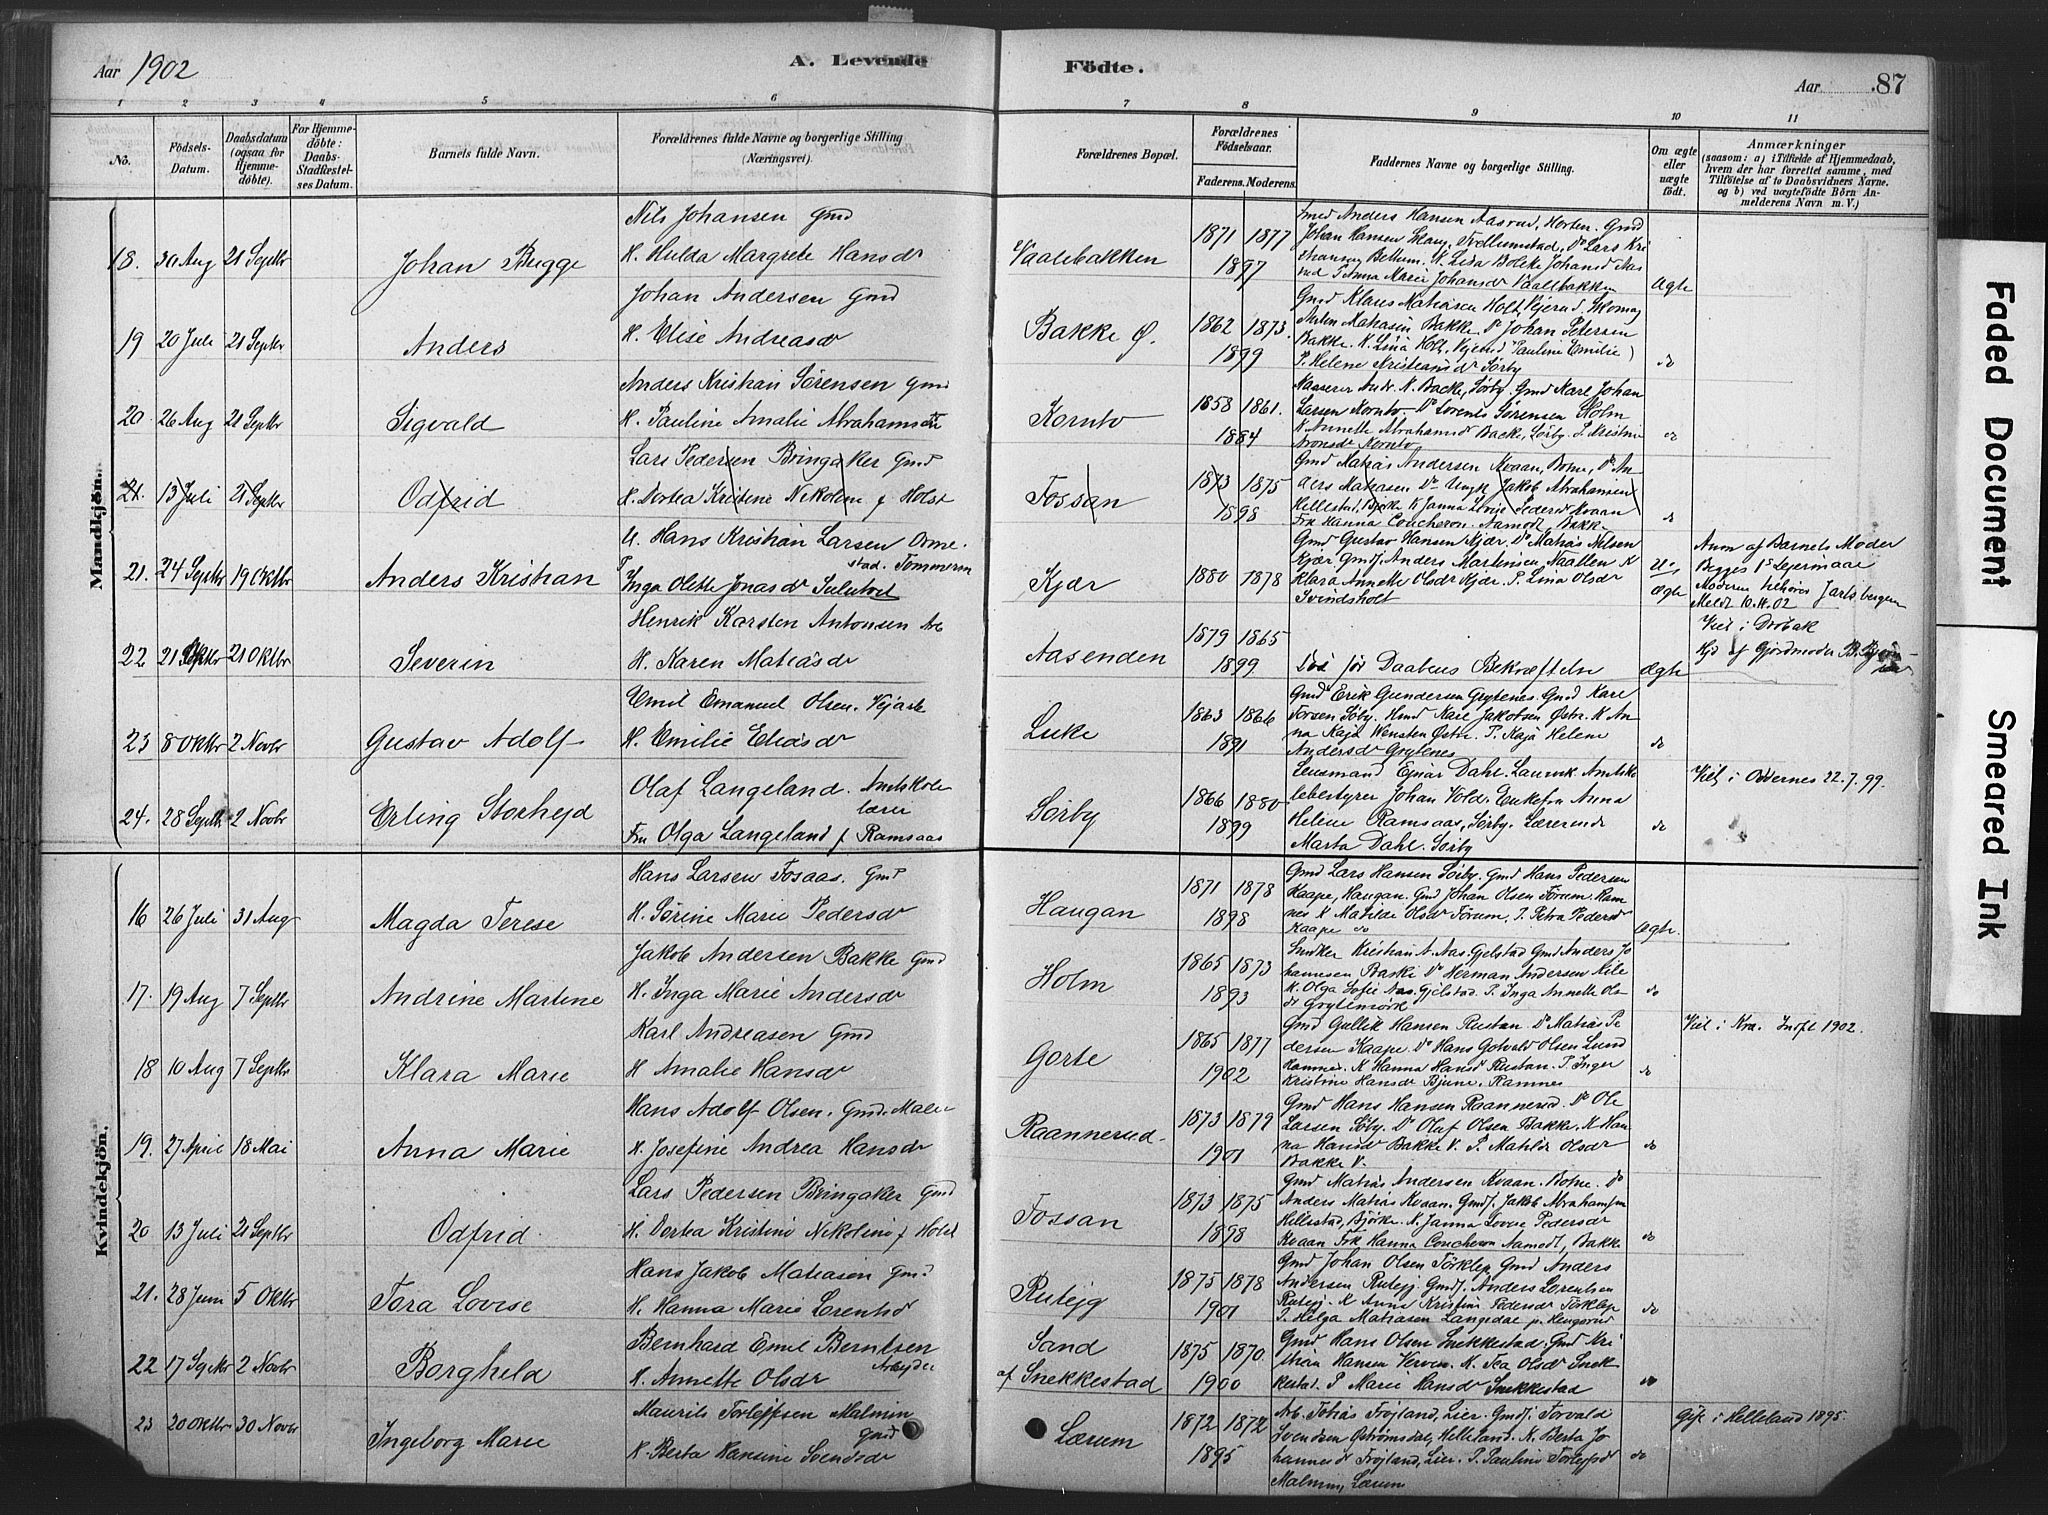 Aar 1902
A. Levende
Födte.
Aar 87
1 2 3 4 5 6 7 8 9 10 11
No.
Födsels-Datum.
Daabsdatum (ogsaa for Hjemme-döbte).
For Hjemme-döbte: Daabs-Stadfæstel-ses Datum.
Barnets fulde Navn.
Forældrenes fulde Navne og borgerlige Stilling
(Næringsvei).
Forældrenes Bopæl.
Forældrenes Födselsaar.
Faderens. Moderens.
Faddernes Navne og borgerlige Stilling.
Om ægte eller uægte födt.
Anmærkninger
(saasom: a) i Tilfælde af Hjemmedaab,
hvem der har forrettet samme, med
Tilföielse af to Daabsvidners Navne.
og b) ved uægtefödte Börn An-
melderens Navn m. V.)
Mandkjön.
18. 30 Aug 21 Septbr Johan Bugge
Nils Johansen Gmd
H. Hulda Margrete Hansdr
Vaalebakken
1871 1877
1897
Smed Anders Hansen Aasrud, Horten. Gmd
Johan Hansen Skaug, Do Lars Kri
stiansen Bettum. K. Lisa Bolette Johansdr Aas
rud P. Anna Marie Johansdr Vaalebakken
Ægte
19 20 Juli 21 Septbr Anders
Johan Andersen Gmd
H. Elise Andreasdr
Bakke Ø.
1862 1873.
1899
Gmd Klaus Matiasen Holt, Vejerud, Skomag
Anton Matiasen Bakke Do Johan Petersen
Bakke. K. Lina Holt, Vejerud (Pauline Emilie)
P. Helene Kristiansdr Sørby
do
20 26 Aug 21 Septbr Sigvald
Anders Kristian Sörensen Gmd
H. Pauline Amalie Abrahamsdtr
Kornbo
1858 1861.
1884
And. N. Backe, Sørby. Gmd Karl Johan
Larsen Kornbo. Do Lorents Sørensen Holm
K Annette Abrahamsdr Backe, Sørby. P. Kristine
Aronsdr Kornbo
do
21. 13 Juli 21 Septbr Odfrid
Lars Pedersen Bringaker Gmd
H. Dortea Kristine Nikoline f Holst
Fossan
1873 1875
1898
Gmd Matias Andersen Kvaan, Botne, Do An
ders Matiasen Do Ungk Jakob Abrahamsen
Hellestad, Bjerke K Janna Lovise Pedersdr Kvaan
Frk Hanna Coucheron Aamodt, Bakke
do
21. 24 Septbr 19 Oktbr Anders Kristian
U. Hans Kristian Larsen Orme-
stad. Tømmerm
P Inga Olette Jonasdr Sulutvet
Kjær
1880 1878
Gmd Gustav Hansen Kjær. Do Matias Nilsen
Kjær Gmdf. Anders Martinsen Naallen K
Klara Annette Olsdr Kjær. P. Lina Olsdr
Svindsholt
U.,
Ægte
Anm af Barnets Moder
Begges 1ste Lejermaal
Moderen tilhører Jarlsbergen
Meldt 10.11.02
22 21 Septbr 21 Oktbr Severin
Henrik Karsten Antonsen Arb
H. Karen Matiasdr
Aasenden
1879 1865
1899
Död før Daabens Bekræftelse
Ægte
Viet i Drøbak
Hjd af Gjordmoder B.
23 8 Oktbr 2 Novbr Gustav Adolf
Emil Emanuel Olsen. Vejarb
H. Emilie Eliasdr
Luke
1863 1866
1891
Gmd Erik Gundersen Grytenes. Gmd Karl
Torsen Søby. Hmd Karl Jakobsen Østre. K An
na Kaja Wensten Østre. P. Kaja Helene
Andersdr Grytenes
do
24. 28 Septbr 2 Novbr Erling Storhejd
Olaf Langeland. Amtskole
lærer
Fru Olga Langeland f Ramsaas
Sörby
1866 1880
1899
Lensmand Ejnar Dahl. Laurvik. Amtsko
lebestyrer Johan Vold. Enkefru Anna
Helene Ramsaas, Sørby. Lærerinde
Marta Dahl. Sørby
do
Viet i Oddernes 22.7.99.
Kvindekjön.
16 26 Juli 31 Aug Magda Terese
Hans Larsen Fosaas. Gmd
H. Sörine Marie Pedersdr
Haugan
1871 1878
1898
Gmd Lars Hansen Sørby. Gmd Hans Pedersen
Kaape, Haugan. Gmd Johan Olsen Førum. Ram
nes K Matilde Olsdr Førum, P. Petra Pedersdr
Kaape do
Ægte.
17. 19 Aug 7 Septbr Andrine Martine
Jakob Andersen Bakke Gmd
H. Inga Marie Andersdr
Holm
1865 1873
1893
Snedker Kristian A. Aas, Gjelstad Gmd Anders Jo
hannesen Do Herman Andersen Kile
K. Olga Sofie Aas. Gjelstad. P. Inga Annette Ols-
dr
do
18 10 Aug 7 Septbr Klara Marie
Karl Andreasen Gmd
H Amalie Hansdr
Gorte
1865 1877
1902
Gmd Gullik Hansen Rustan. Do Matias Pe
dersen Kaape. Do Hans Gotvald Olsen Lund
Ramnes. K Hanna Hansdr Rustan. P. Inger
Kristine Hansdr Bjune. Ramnes
do
Viet i Kra. 1902.
19. 27 April 18 Mai Anna Marie
Hans Adolf Olsen. Gmd. Maler
H. Josefine Andrea Hansdr
Raannerud.
1873 1879
1901
Gmd Hans Hansen Raannerud. Do Ole
Larsen Søby. Do Olaf Olsen Bakke. K Han
na Hansdr Bakke V. P. Matilde Olsdr
Bakke V.
do
20 13 Juli 21 Septbr Odfrid
Lars Pedersen Bringaker Gmd
H. Dortea Kristine Nikoline f Holst
Fossan
1873 1875
1898
Gmd Matias Andersen Kvaan. Botne. Do
Anders Matias Kvaan. Gmdf. Jakob Abrahamsen
Hellestad, Björke. K. Janna Lovise Pedersdr
Kvaan Frk Hanna Coucheron Aamodt, Bakke
do
21. 28 Juni 5 Oktbr Tora Lovise
Hans Jakob Matiasen Gmd
H. Hanna Marie Lorentsdr
Rutejg
1875 1878
1901
Gmd Johan Olsen Törklep, Gmd Anders
Andersen Rutejg Gmdf. Anders Lorentsen
Rutejg. K Anna Kristine Pedersdr Törklep
P. Helga Matiasen Langedal
do
22 17 Septbr 2 Novbr Borghild
Bernhard Emil Berntsen
Arbejder
H. Annette Olsdr
Sand
af Snekkestad
1875 1870.
1900
Gmd Hans Olsen Snekkestad. Gmd Kri
stian Hansen Verven. K. Tea Olsdr Snek
kestad. P. Marie Hansdr Snekkestad
do
23 20 Oktbr 30 Novbr Ingeborg Marie
Maurits Torlejfsen Malmin
Gmd
H. Berta Hansine Svendsdr
Lærum
1872 1872
1895
Arb. Tobias Frøjland, Lier. Gmdf. Torvald
Svendsen Østrømsdal, Helleland. K. Berta Jo
hannesdr Frøjland, Lier. P. Pauline Torlejfsdr
Malmin, Lærum
do
Gift i Helleland 1895.
Faded Document
Smeared Ink